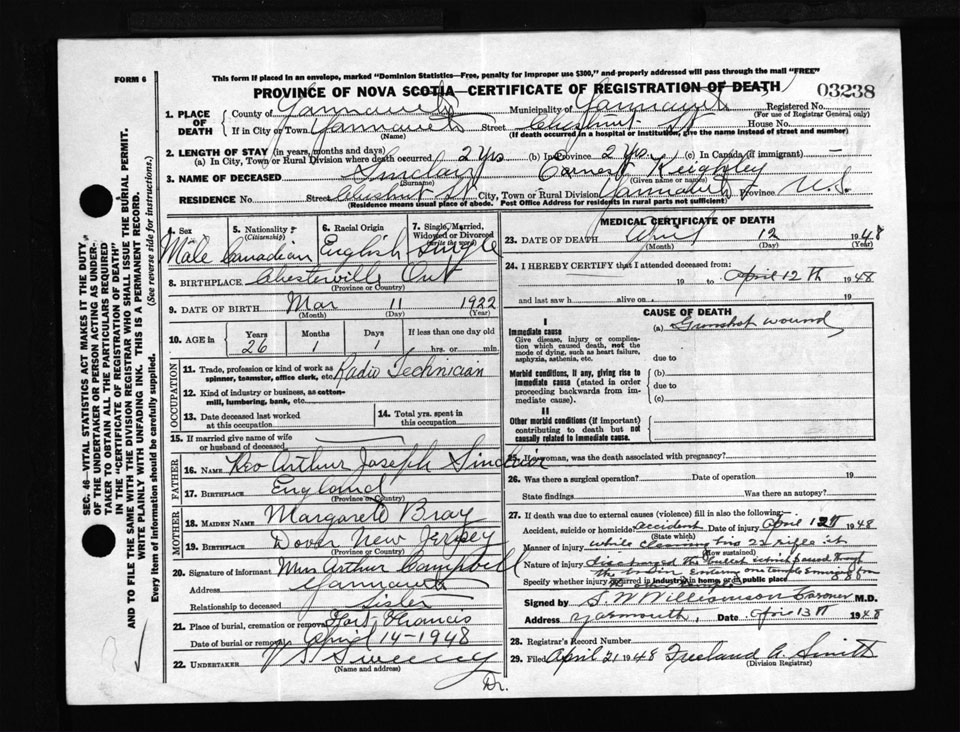 FORM 6
This form if placed in an envelope, marked "Dominion Statistics—Free, penalty for improper use $300," and properly addressed will pass through the mail "FREE"
PROVINCE OF NOVA SCOTIA—CERTIFICATE OF REGISTRATION OF DEATH
03238
1. PLACE OF DEATH
County of Yarmouth Municipality of Yarmouth Registered No.
(For use of Registrar General only)
If in City or Town Yarmouth Street Chestnut St House No.
(Name) (If death occurred in a hospital or institution, give the name instead of street and number)
2. LENGTH OF STAY (in years, months and days)
(a) In City, Town or Rural Division where death occurred 2 Yrs (b) In Province 2 Yrs. (c) In Canada (if immigrant) —
3. NAME OF DECEASED Sinclair Earnest Keighley
(Surname) (Given name or names)
RESIDENCE No. Street Chestnut St City, Town or Rural Division Yarmouth Province N.S.
(Residence means usual place of abode. Post Office Address for residents in rural parts not sufficient)
4. Sex 5. Nationality (Citizenship) 6. Racial Origin 7. Single, Married, Widowed or Divorced (write the word)
Male Canadian English Single
8. BIRTHPLACE Chesterville Ont
(Province or Country)
9. DATE OF BIRTH Mar 11 1922
(Month) (Day) (Year)
10. AGE in Years Months Days If less than one day old
26 1 1 hrs. or min.
OCCUPATION
11. Trade, profession or kind of work as spinner, teamster, office clerk, etc. Radio Technician
12. Kind of industry or business, as cotton-mill, lumbering, bank, etc.
13. Date deceased last worked at this occupation
14. Total yrs. spent in this occupation
15. If married give name of wife or husband of deceased
FATHER
16. NAME Rev Arthur Joseph Sinclair
17. BIRTHPLACE England
(Province or Country)
MOTHER
18. MAIDEN NAME Margaret Bray
19. BIRTHPLACE Dover New Jersey
(Province or Country)
20. Signature of Informant Mrs Arthur Campbell
Address Yarmouth
Relationship to deceased Sister
21. Place of burial, cremation or removal Fort Francis
Date of burial or removal April 14-1948
22. UNDERTAKER V S Sweeny
(Name and address)
Dr.
MEDICAL CERTIFICATE OF DEATH
23. DATE OF DEATH April 12 1948
(Month) (Day) (Year)
24. I HEREBY CERTIFY that I attended deceased from:
19 to April 12th 1948
and last saw h alive on 19
CAUSE OF DEATH
I
Immediate cause
Give disease, injury or complication which caused death, not the mode of dying, such as heart failure, asphyxia, asthenia, etc.
(a) Gunshot wound
due to
Morbid conditions, if any, giving rise to immediate cause (stated in order proceeding backwards from immediate cause).
(b)
due to
(c)
II
Other morbid conditions (if important) contributing to death but not causally related to immediate cause.
25. If a woman, was the death associated with pregnancy?
26. Was there a surgical operation? Date of operation 19
State findings Was there an autopsy?
27. If death was due to external causes (violence) fill in also the following:
Accident, suicide or homicide? accident Date of injury April 12th 1948
(State which)
Manner of injury while cleaning his 22 rifle it
(How sustained)
Nature of injury discharged the bullet which passed through
the brain entering one temple
Specify whether injury occurred in industry, in home, or in public place
Signed by S. W. Williamson Coroner M.D.
Address Yarmouth, Date April 13th 1948
28. Registrar's Record Number
29. Filed April 21 1948 Freeland A. Smith
(Division Registrar)
SEC. 46—VITAL STATISTICS ACT MAKES IT THE DUTY OF THE UNDERTAKER OR PERSON ACTING AS UNDERTAKER TO OBTAIN ALL THE PARTICULARS REQUIRED IN THE "CERTIFICATE OF REGISTRATION OF DEATH"
AND TO FILE THE SAME WITH THE DIVISION REGISTRAR WHO SHALL ISSUE THE BURIAL PERMIT.
WRITE PLAINLY WITH UNFADING INK. THIS IS A PERMANENT RECORD.
Every item of information should be carefully supplied. (See reverse side for instructions.)